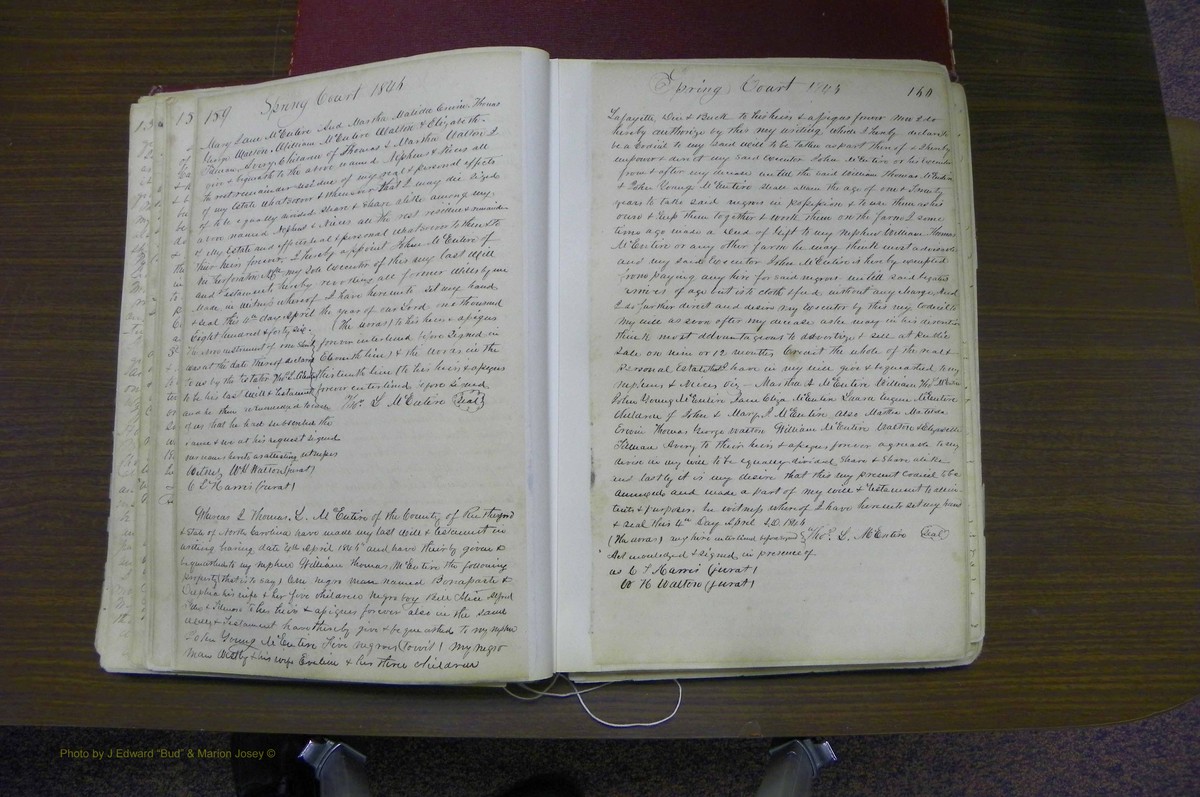 159 Spring Court 1846
Mary Jane McEntire And Martha Matilda Erwin, Thomas
George Walton William McEntire Walton & Elizabeth
Tilman Avery Children of Thomas & Martha Walton I
give & bequeath to the above named Nephus & Nieces all
the rest remainder residue of my real & personal effects
of my Estate whatsoever & whensoever that I may die seized
of to be equally divided share & share alike among my
above named Nephus & Nieces all the rest residue & remainder
of my Estate and effects real & personal whatsoever to them & to
their heirs forever. I hereby appoint John McEntire of
Rutherfordton my sole executor of this my last will
and Testament, hereby revoking all former wills by me
made in witness whereof I have hereunto set my hand
& seal this day April the year of our Lord one thousand
Eight hundred & forty six. (The words) to his heirs & assigns
The above instrument of one sheet forever interlined before signed in
was at the date thereof declared Eleventh line) & the words in the
to us by the testator Thos L McEntire thirteenth line (to his heirs & assigns
to be his last will & testament forever interlined before signed
and he then acknowledged to each Thos. L McEntire (Seal)
of us that he had subscribed the
same & we at his request signed
our names hereto as attesting witnesses
W H Walton (jurat)
C L Harris (jurat)
Whereas I Thomas. L. McEntire of the County of Rutherford
& State of North Carolina have made my last will & testament in
writing bearing date April 1846 and have thereby given &
bequeathed to my nephew William Thomas McEntire the following
property (that is to say) One negro man named Bonaparte &
his wife & her five children negro boy Alfred
to his heirs & assigns forever also in the same
will & Testament have thereby give & bequeathed to my nephew
John Young McEntire Five negros (to wit) My negro
man & his wife Eveline & her three children
Spring Court 1846 160
Lafayette, & Buck to his heirs & assigns forever now I do
hereby authorize by this my writing, which I hereby declare to
be a codicil to my said will to be taken as part thereof & I hereby
empower & direct my said executor John McEntire or his
from & after my decease untill the said William Thomas McEntire
& John Young McEntire shall attain the age of one & twenty
years to take said negros in possession & to use them as his
own & keep them together & work them on the farm I some
time ago made a deed of gift to my nephew William Thomas
McEntire or any other farm he may think most advisable
and my said executor John McEntire is hereby exempted
from paying any hire for said negros untill said legatees
arrive of age but is to cloth & feed without any charge, And
I do further direct and desire my Executor by this my codicil to
my will as soon after my decease as he may in his discretion
think most advantageous to advertize & sell at public
sale on nine or 12 months credit the whole of the real &
personal estate that I have in my will give & bequeathed to my
nephews & Nieces viz – Martha A McEntire William Thos McEntire
John Young McEntire Jane Eliza McEntire Laura Eugene McEntire
children of John & Mary A McEntire also Martha Matilda
Erwin Thomas George Walton William McEntire Walton & Elizabeth
Tilman Avery to their heirs & assigns forever agreeable to my
devise in my will to be equally divided, Share & Share alike
and lastly it is my desire that this my present Codicil to be
annexed and made a part of my will & Testament to all
& purposes. In witness whereof I have hereunto set my hand
& seal this day April A.D. 1846
(The words) my hire interlined before signed Thos. L. McEntire (Seal)
Acknowledged & signed in presence of
us C L Harris (jurat)
W H Walton (jurat)
Photo by J Edward "Bud" & Marion Josey ©